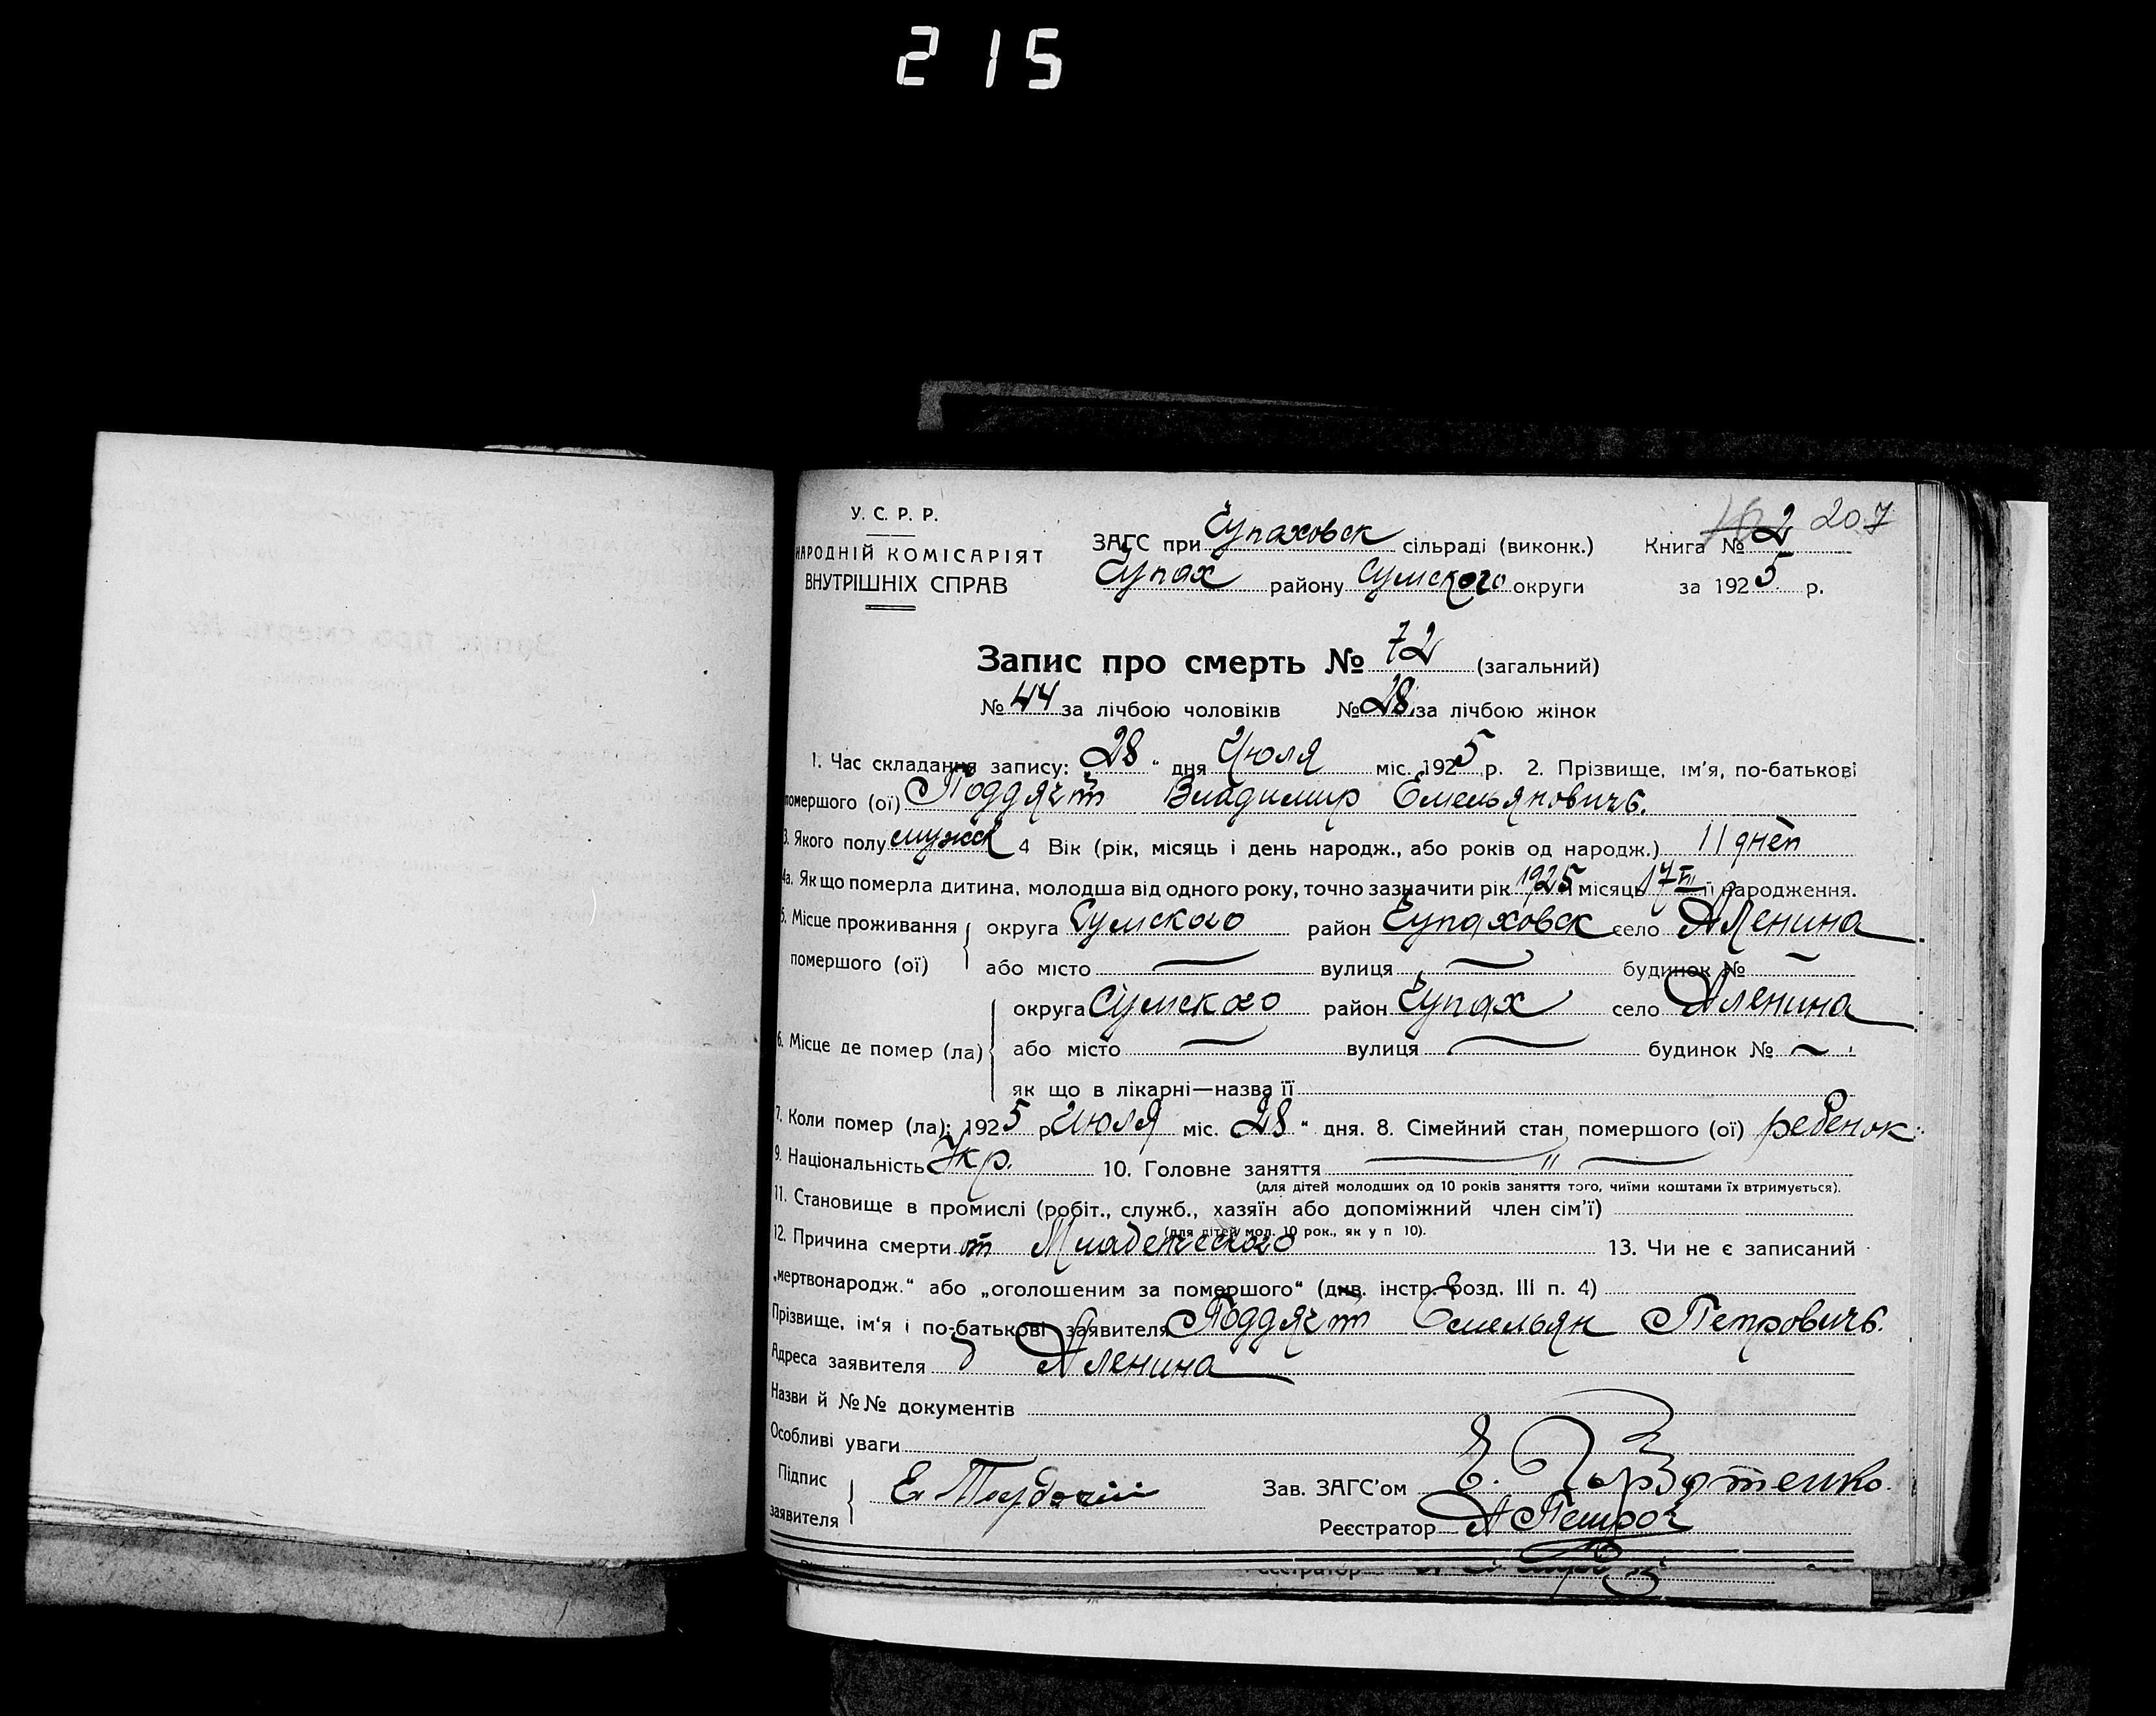 215
У. С. Р. Р.
НАРОДНІЙ КОМІСАРІЯТ
ВНУТРІШНІХ СПРАВ
ЗАГС при Чупаховск сільраді (виконк.)
Чупах району Сумского округи
Книга № 2 207
за 1925 р.
Запис про смерть № 72 (загальний)
№ 44 за лічбою чоловіків № 28 за лічбою жінок
1. Час складання запису: 28 " дня Июля міс. 1925 р. 2. Прізвище, ім'я, по-батькові
помершого (ої) Владимир Емельяновичъ.
3. Якого полу мужск 4 Вік (рік, місяць і день народж., або років од народж.) 11 дней
4а. Як що померла дитина, молодша від одного року, точно зазначити рік 1925 місяць 17 VII її народження.
5. Місце проживання помершого (ої) округа Сумского район Чупаховск село Аленина
або місто — вулиця — будинок № —
6. Місце де помер (ла) округа Сумского район Чупах село Аленина
або місто — вулиця — будинок № —
як що в лікарні—назва її
7. Коли помер (ла): 1925 р Июля міс. 28 " дня. 8. Сімейний стан помершого (ої) ребенок
9. Національність Укр. 10. Головне заняття — " —
(для дітей молодших од 10 років заняття того, чиїми коштами їх втримується).
11. Становище в промислі (робіт., служб., хазяїн або допоміжний член сім'ї)
(для дітей мол. 10 рок., як у п 10).
12. Причина смерти от Младенческого 13. Чи не є записаний
„мертвонародж." або „оголошеним за помершого" (див. інстр. розд. III п. 4)
Прізвище, ім'я і по-батькові заявителя Емельян Петровичъ.
Адреса заявителя Аленина
Назви й №№ документів
Особливі уваги
Підпис заявителя Е.
Зав. ЗАГС'ом Е.
Реєстратор А
Реєстратор